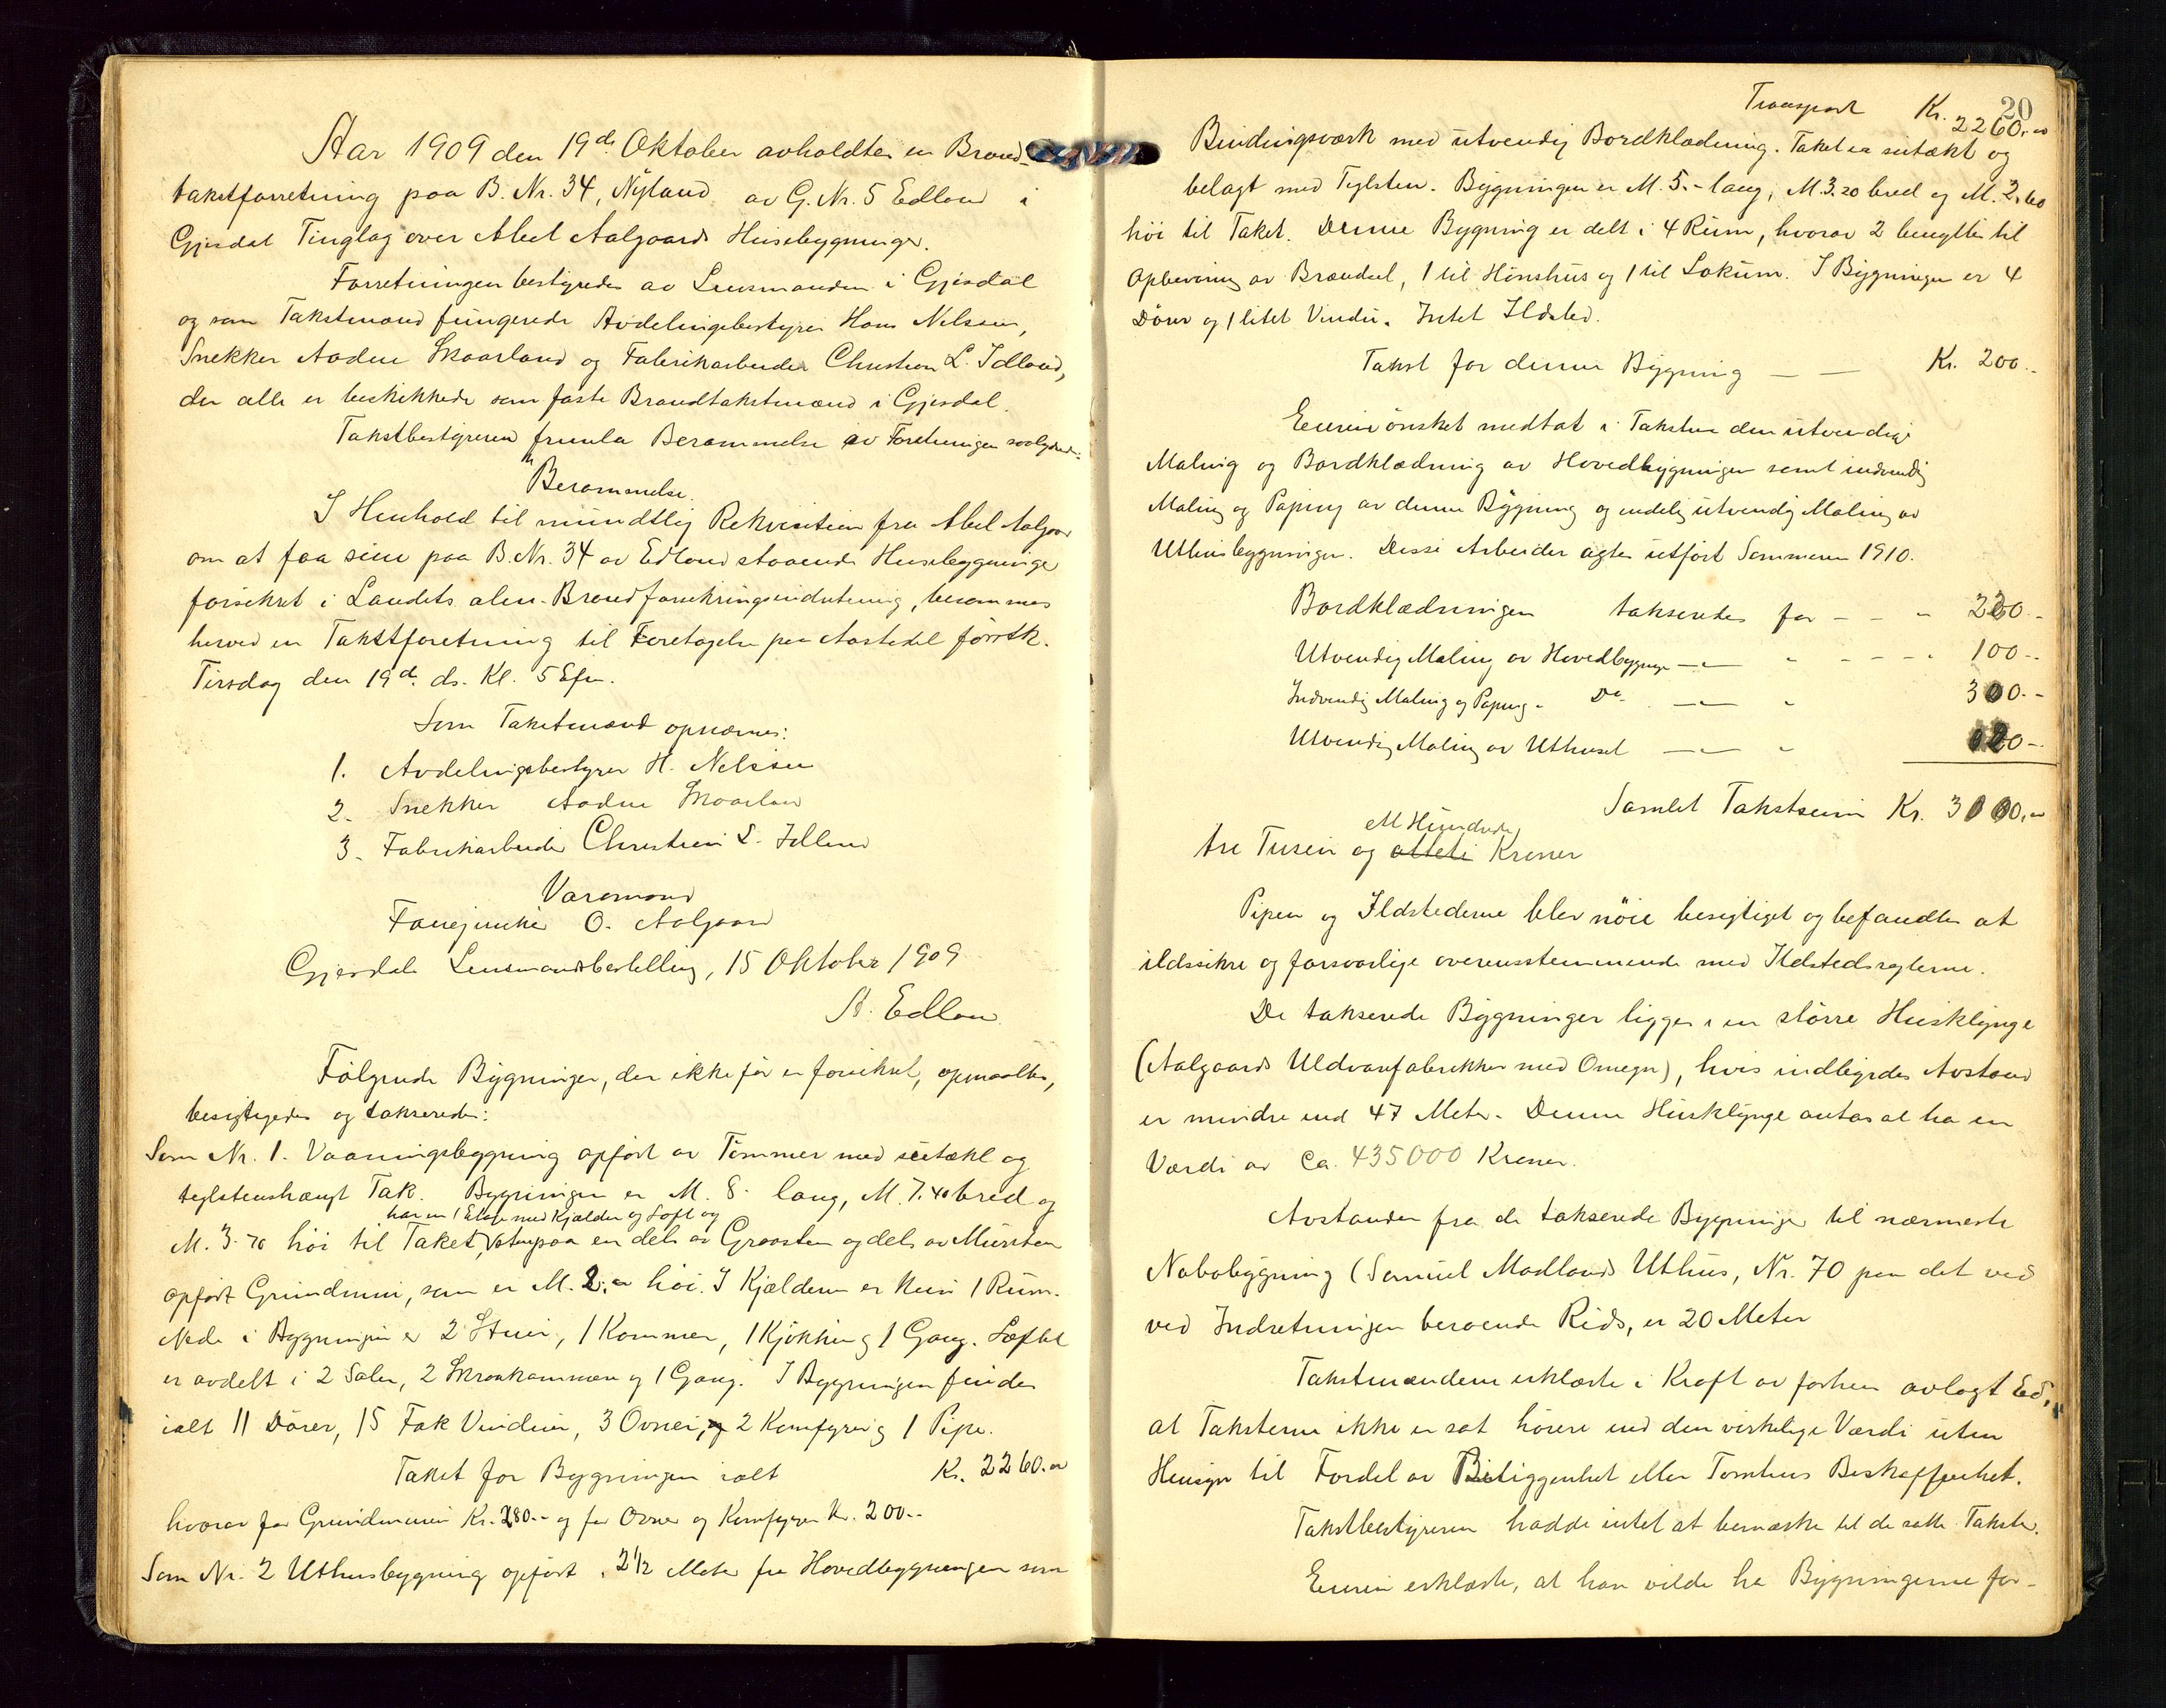 Aar 1909 den 19de Oktober avholdtes en Brand-
takstforretning paa B. Nr. 34, Nyland av G. Nr. 5 Edland i
Gjesdal Tinglag over Abel Aalgaards Husebygninger.
Forretningen bestyredes av Lensmanden i Gjesdal
og som Takstmænd fungerede Avdelingsbestyrer Hans Nelsen,
Snekker Aadne Skaarland og Fabrikarbeider Christian L. Idland,
der alle er beskikkede som faste Brandtakstmænd i Gjesdal.
Takstbestyreren fremla Berammelse av Forretningen saalydende:
"Berammelse.
I Henhold til mundtlig Rekvisition fra Abel Aalgaar
om at faa sine paa B. Nr. 34 av Edland staaende Husebygninger
forsikret i Landets alm. Brandforsikringsindretning, berammes
herved en Takstforetning til Foretagelse paa Aastedet førstk.
Tirsdag den 19de ds. Kl. 5 Efm.
Som Takstmænd opnævnes:
1. Avdelingsbestyrer H. Nelsen
2. Snekker Aadne Skaarlan
3. Fabrikarbeider Christian L. Idland
Varamand
Fanejunker O. Aalgaard
Gjesdals Lensmandsbestilling, 15 Oktober 1909
A. Edlan
Følgende Bygninger, der ikke før er forsikret, opmaaltes,
besigtigedes og takseredes:
Som Nr. 1. Vaaningsbygning opført av Tømmer med sutækt og
teglstenshængt Tak. Bygningen er M. 8.- lang, M. 7.40 bred og
har en 1 Etage med Kjælder og Loft og
M. 3.70 høi til Taket, staar paa en dels av Graasten og dels av Mursten
opført Grundmur, som er M. 2.- høi. I Kjælderen er kun 1 Rum.
Nede i Bygningen er 2 Stuer, 1 Kammer, 1 Kjøkken og 1 Gang. Loftet
er avdelt i 2 Saler, 2 Skraakammere og 1 Gang. I Bygningen findes
ialt 11 Dører, 15 Fak Vinduer, 3 Ovner, og 2 Komfyrer og 1 Pipe.
Takst for Bygningen ialt Kr. 2260.-
hvorav for Grundmuren Kr. 280.- og for Ovner og Komfyrer Kr. 200.-
Som Nr. 2 Uthusbygning opført 2 1/2 Meter fra Hovedbygningen som
20
Transport Kr. 2260.-
Bindingsværk med utvendig Bordklædning. Taket er sutækt og
belagt med Teglsten. Bygningen er M. 5.- lang, M. 3.20 bred og M. 2.60
høi til Taket. Denne Bygning er delt i 4 Rum, hvorav 2 benyttes til
Opbevaring av Brændsel, 1 til Hønshus og 1 til Lokum. I Bygningen er 4
Dører og 1 litet Vindu. Intet Ildsted.
Takst for denne Bygning — — Kr. 200.-
Eieren ønsket medtat i Taksten den utvendige
Maling og Bordklædning av Hovedbygningen samt indvendig
Maling og Papning av denne Bygning og endelig utvendig Maling av
Uthusbygningen. Disse Arbeider agtes utført Sommeren 1910.
Bordklædningen takseredes for - - - 220.-
Utvendig Maling av Hovedbygninge —"— " - - - 100.-
Indvendig Maling og Papning " Do —"— " 300.-
Utvendig Maling av Uthuset —"— " 20.-
Samlet Takstsum Kr. 3100.-
et Hundrede
tre Tusen og otteti Kroner
Pipen og Ildstederne blev nøie besigtiget og befandtes at
ildssikre og forsvarlige overensstemmende med Ildstedsreglerne.
De takserede Bygninger ligger i en større Husklynge
(Aalgaards Uldvarefabrikker med Omegn), hvis indbyrdes Avstand
er mindre end 47 Meter. Denne Husklynge antas at ha en
Værdi av Ca. 435000 Kroner.
Avstanden fra de takserede Bygninger til nærmeste
Nabobygning (Samuel Madlands Uthus, Nr. 70 paa det ved
ved Indretningen beroende Rids, er 20 Meter
Takstmændene erklærte i Kraft av forhen avlagt Ed,
at Taksterne ikke er sat høiere end den virkelige Værdi uten
Hensyn til Fordel av Beliggenhet eller Tomtens Beskaffenhet.
Takstbestyreren hadde intet at bemærke til de satte Takster.
Eieren erklærte, at han vilde ha Bygningerne for-